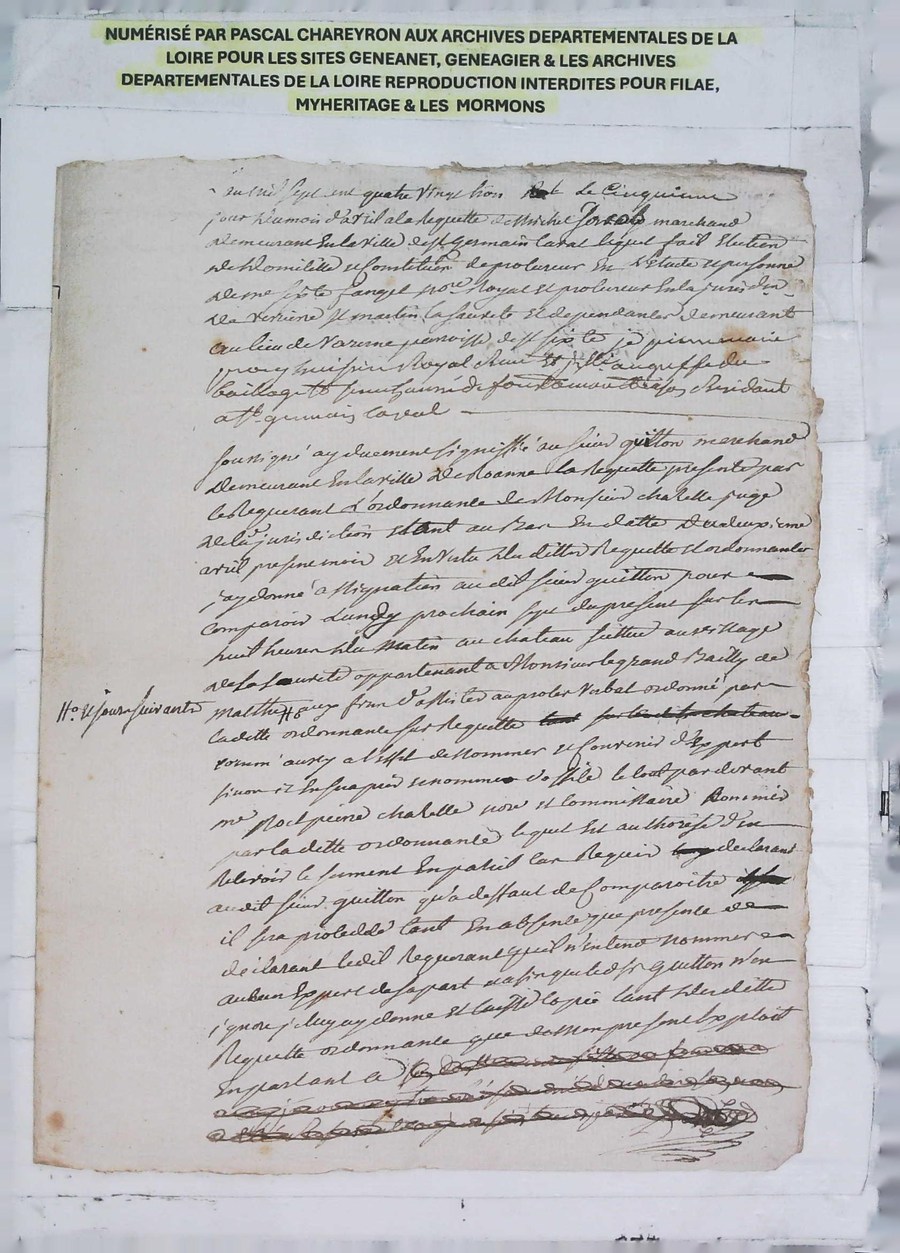 NUMÉRISÉ PAR PASCAL CHAREYRON AUX ARCHIVES DEPARTEMENTALES DE LA
LOIRE POUR LES SITES GENEANET, GENEAGIER & LES ARCHIVES
DEPARTEMENTALES DE LA LOIRE REPRODUCTION INTERDITES POUR FILAE,
MYHERITAGE & LES MORMONS
mil sept cent quatre vingt trois Le Cinquieme
jour du mois d'avril a la Requette de Michel marchand
demeurant En la ville de st Germain laval lequel fait Election
de domicille et Constitution de procureur En L'etude et personne
de me sixte royal et procureur En la jurisdon
de verrine st martin la sauveté et dependances demeurant
au lieu de paroisse de st sixte
huissier Royal au greffe du
bailliage Residant
a st germain laval
soussigné ay duement signiffié au sieur guitton marchand
demeurant En la ville de Roanne la Requette presenté par
le Requerant L'ordonnance de Monsieur chazelle juge
de la jurisdiction Etant au Bas En datte du deuxieme
avril presens mois et En Vertu desdittes Requette et ordonnances
j'ay donné assignation au dit sieur guitton pour
comparoir Lundy prochain sept du present sur les
huit heures du Matin au chateau scittué au village
de la sauveté appartenant a Monsieur le grand Bailly de
Ho. et jours suivants
malthe Ho aux fins d'assister au proces Verbal ordonné par
la ditte ordonnance sur Requette
comme aussy a l'effet de Nommer et Convenir d'Expert
sinon il En sera pris et nommé d'office le tout par devant
me pierre chazelle nore et Commissaire Nommé
par la ditte ordonnance lequel Est authorisé d'en
Recevoir le serment En pareil cas Requis declarant
audit sieur guitton qu'a deffaut de Comparoitre
il sera procedde tant En absence que presence
declarant ledit Requerant qu'il n'entend nommer
aucun Expert de sa part et afin que led sr guitton n'en
ignore je luy ay donné et laissé Copie tant desdittes
Requette ordonnance que de mon present Exploit
En parlant